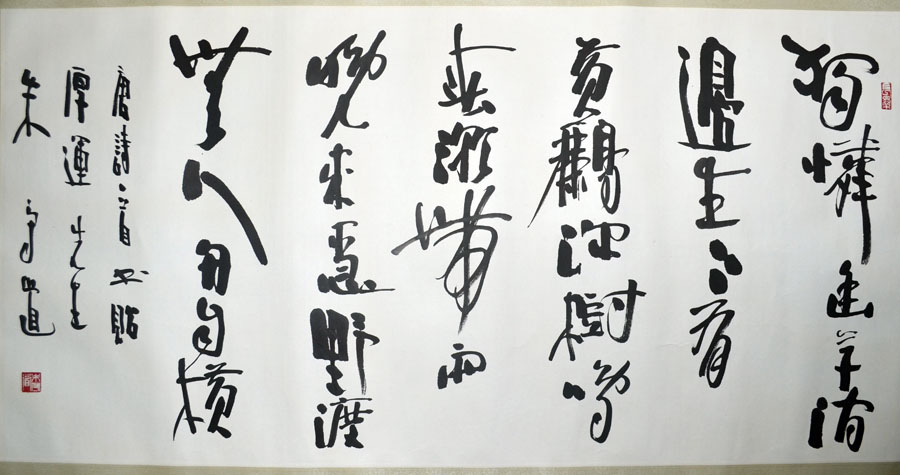 獨憐幽草澗
邊生上有
黃鸝深樹鳴
春潮帶雨
晚來急野渡
無人舟自橫
唐詩一首書貽
厚運先生
朱守道